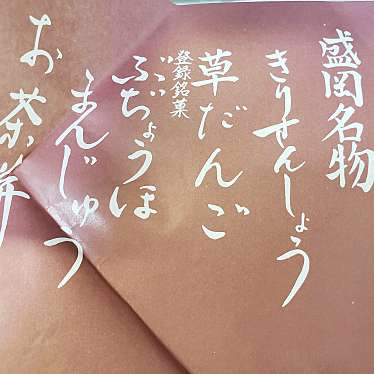 盛岡名物
きりせんしょう
草だんご
登録銘菓
ぶぢょうほ
まんじゅう
お茶餅